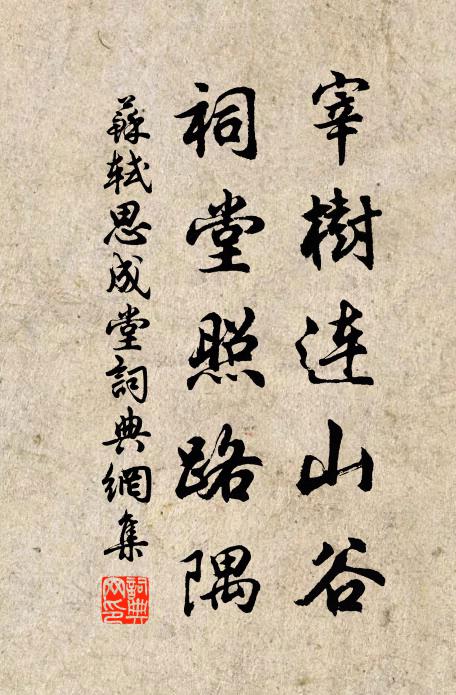 宰樹連山谷
祠堂照路隅
蘇軾思成堂詞典網集
詞典网印